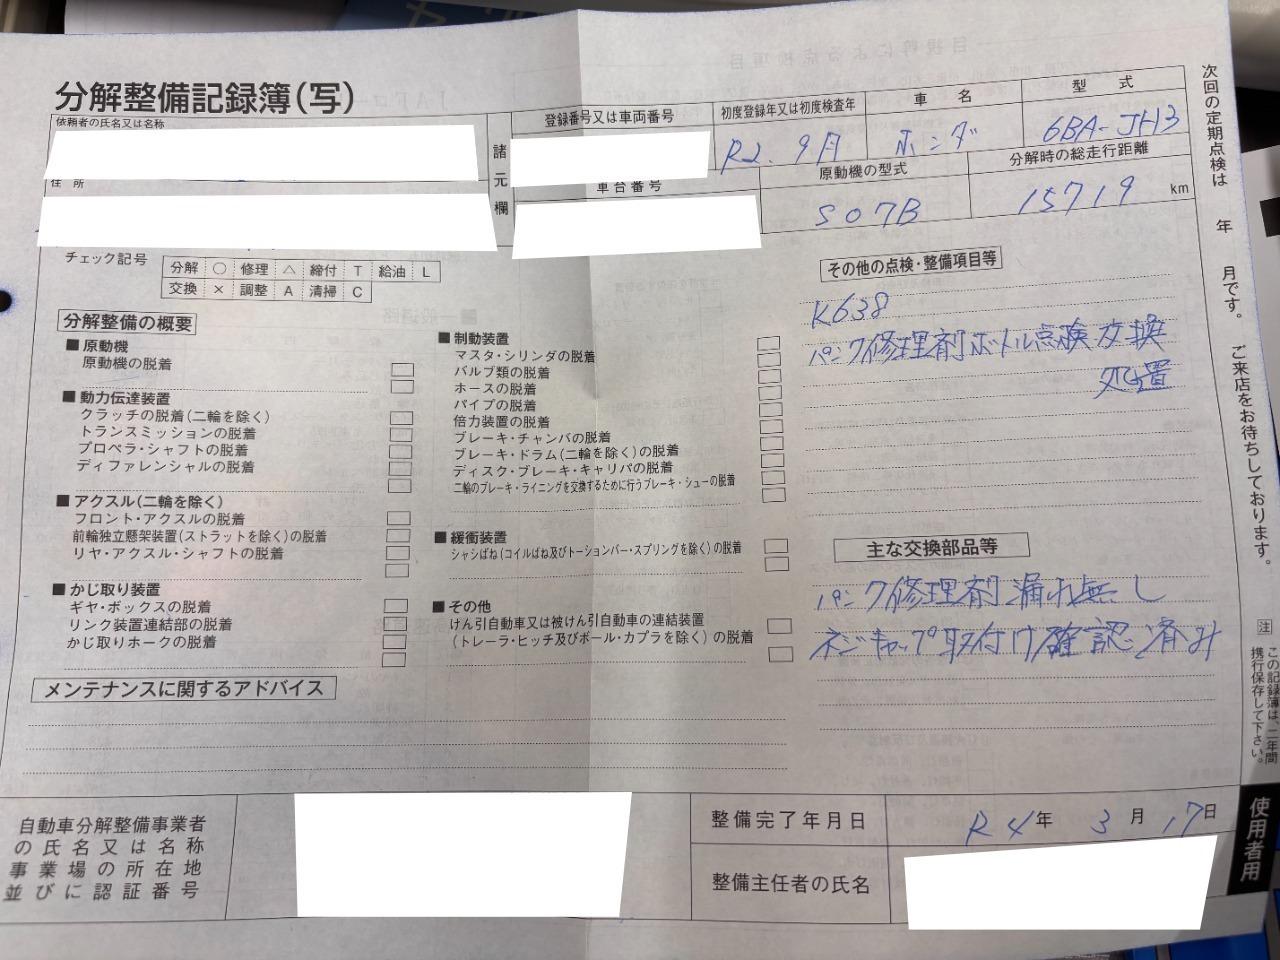 分解整備記録簿(写)
依頼者の氏名又は名称
住 所
諸元欄
登録番号又は車両番号
初度登録年又は初度検査年
車 名
型 式
R2. 9月
ホンダ
6BA-JH3
車台番号
原動機の型式
分解時の総走行距離
S07B
15719 km
チェック記号
分解 ○ 修理 △ 締付 T 給油 L
交換 × 調整 A 清掃 C
分解整備の概要
■ 原動機
原動機の脱着
■ 動力伝達装置
クラッチの脱着(二輪を除く)
トランスミッションの脱着
プロペラ・シャフトの脱着
ディファレンシャルの脱着
■ アクスル(二輪を除く)
フロント・アクスルの脱着
前輪独立懸架装置(ストラットを除く)の脱着
リヤ・アクスル・シャフトの脱着
■ かじ取り装置
ギヤ・ボックスの脱着
リンク装置連結部の脱着
かじ取りホークの脱着
■ 制動装置
マスタ・シリンダの脱着
バルブ類の脱着
ホースの脱着
パイプの脱着
倍力装置の脱着
ブレーキ・チャンバの脱着
ブレーキ・ドラム(二輪を除く)の脱着
ディスク・ブレーキ・キャリパの脱着
二輪のブレーキ・ライニングを交換するために行うブレーキ・シューの脱着
■ 緩衝装置
シャシばね(コイルばね及びトーションバー・スプリングを除く)の脱着
■ その他
けん引自動車又は被けん引自動車の連結装置
(トレーラ・ヒッチ及びボール・カプラを除く)の脱着
その他の点検・整備項目等
K638
パンク修理剤ボトル点検交換
処置
主な交換部品等
パンク修理剤漏れ無し
ネジキャップ取付け確認済み
メンテナンスに関するアドバイス
自動車分解整備事業者
の氏名又は名称
事業場の所在地
並びに認証番号
整備完了年月日
R4年 3月 17日
整備主任者の氏名
次回の定期点検は 年 月です。 ご来店をお待ちしております。
注 この記録簿は、二年間
携行保存して下さい。
使用者用